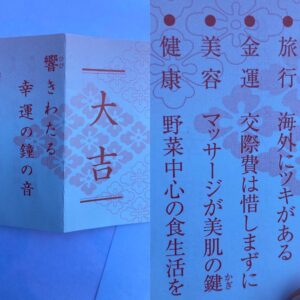 大吉
響きわたる
ひび
幸運の鐘の音
●旅行 海外にツキがある
●金運 交際費は惜しまずに
●美容 マッサージが美肌の鍵
かぎ
●健康 野菜中心の食生活を